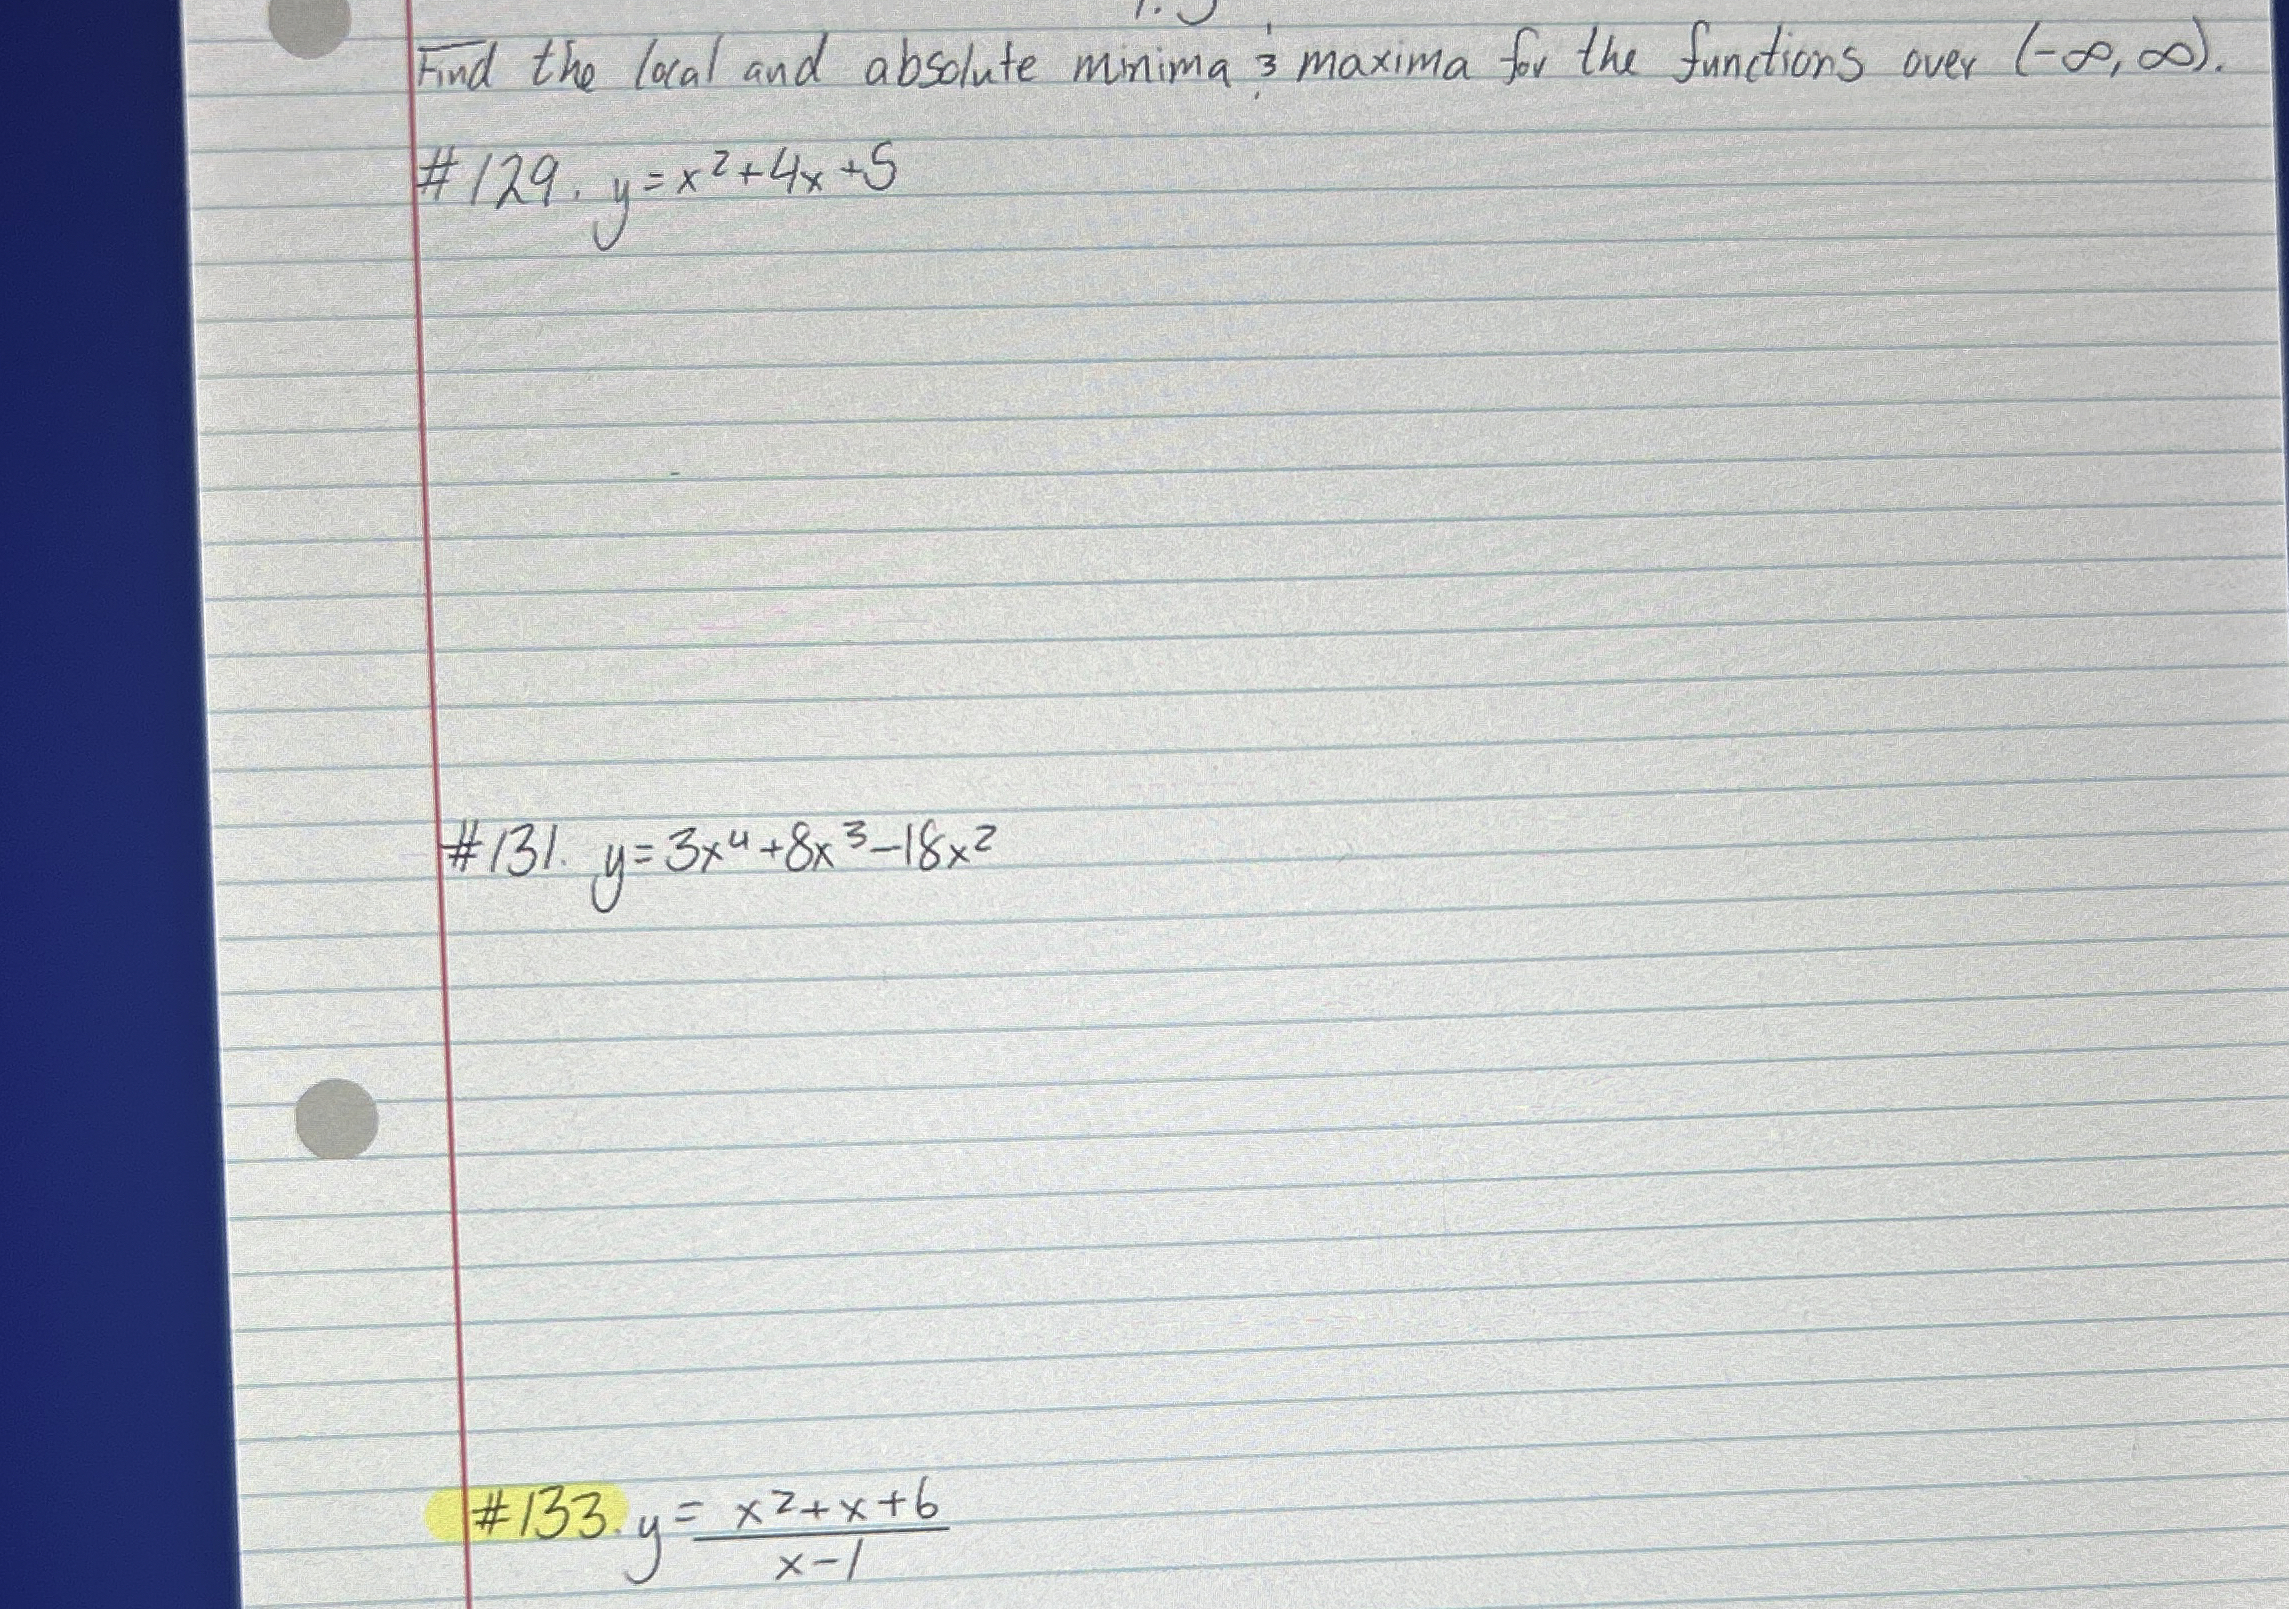 Find the local and absolute minima & maxima for the functions over (-∞, ∞).
#129. y = x² + 4x + 5
#131. y = 3x⁴ + 8x³ - 18x²
#133. y = x² + x + 6
x - 1